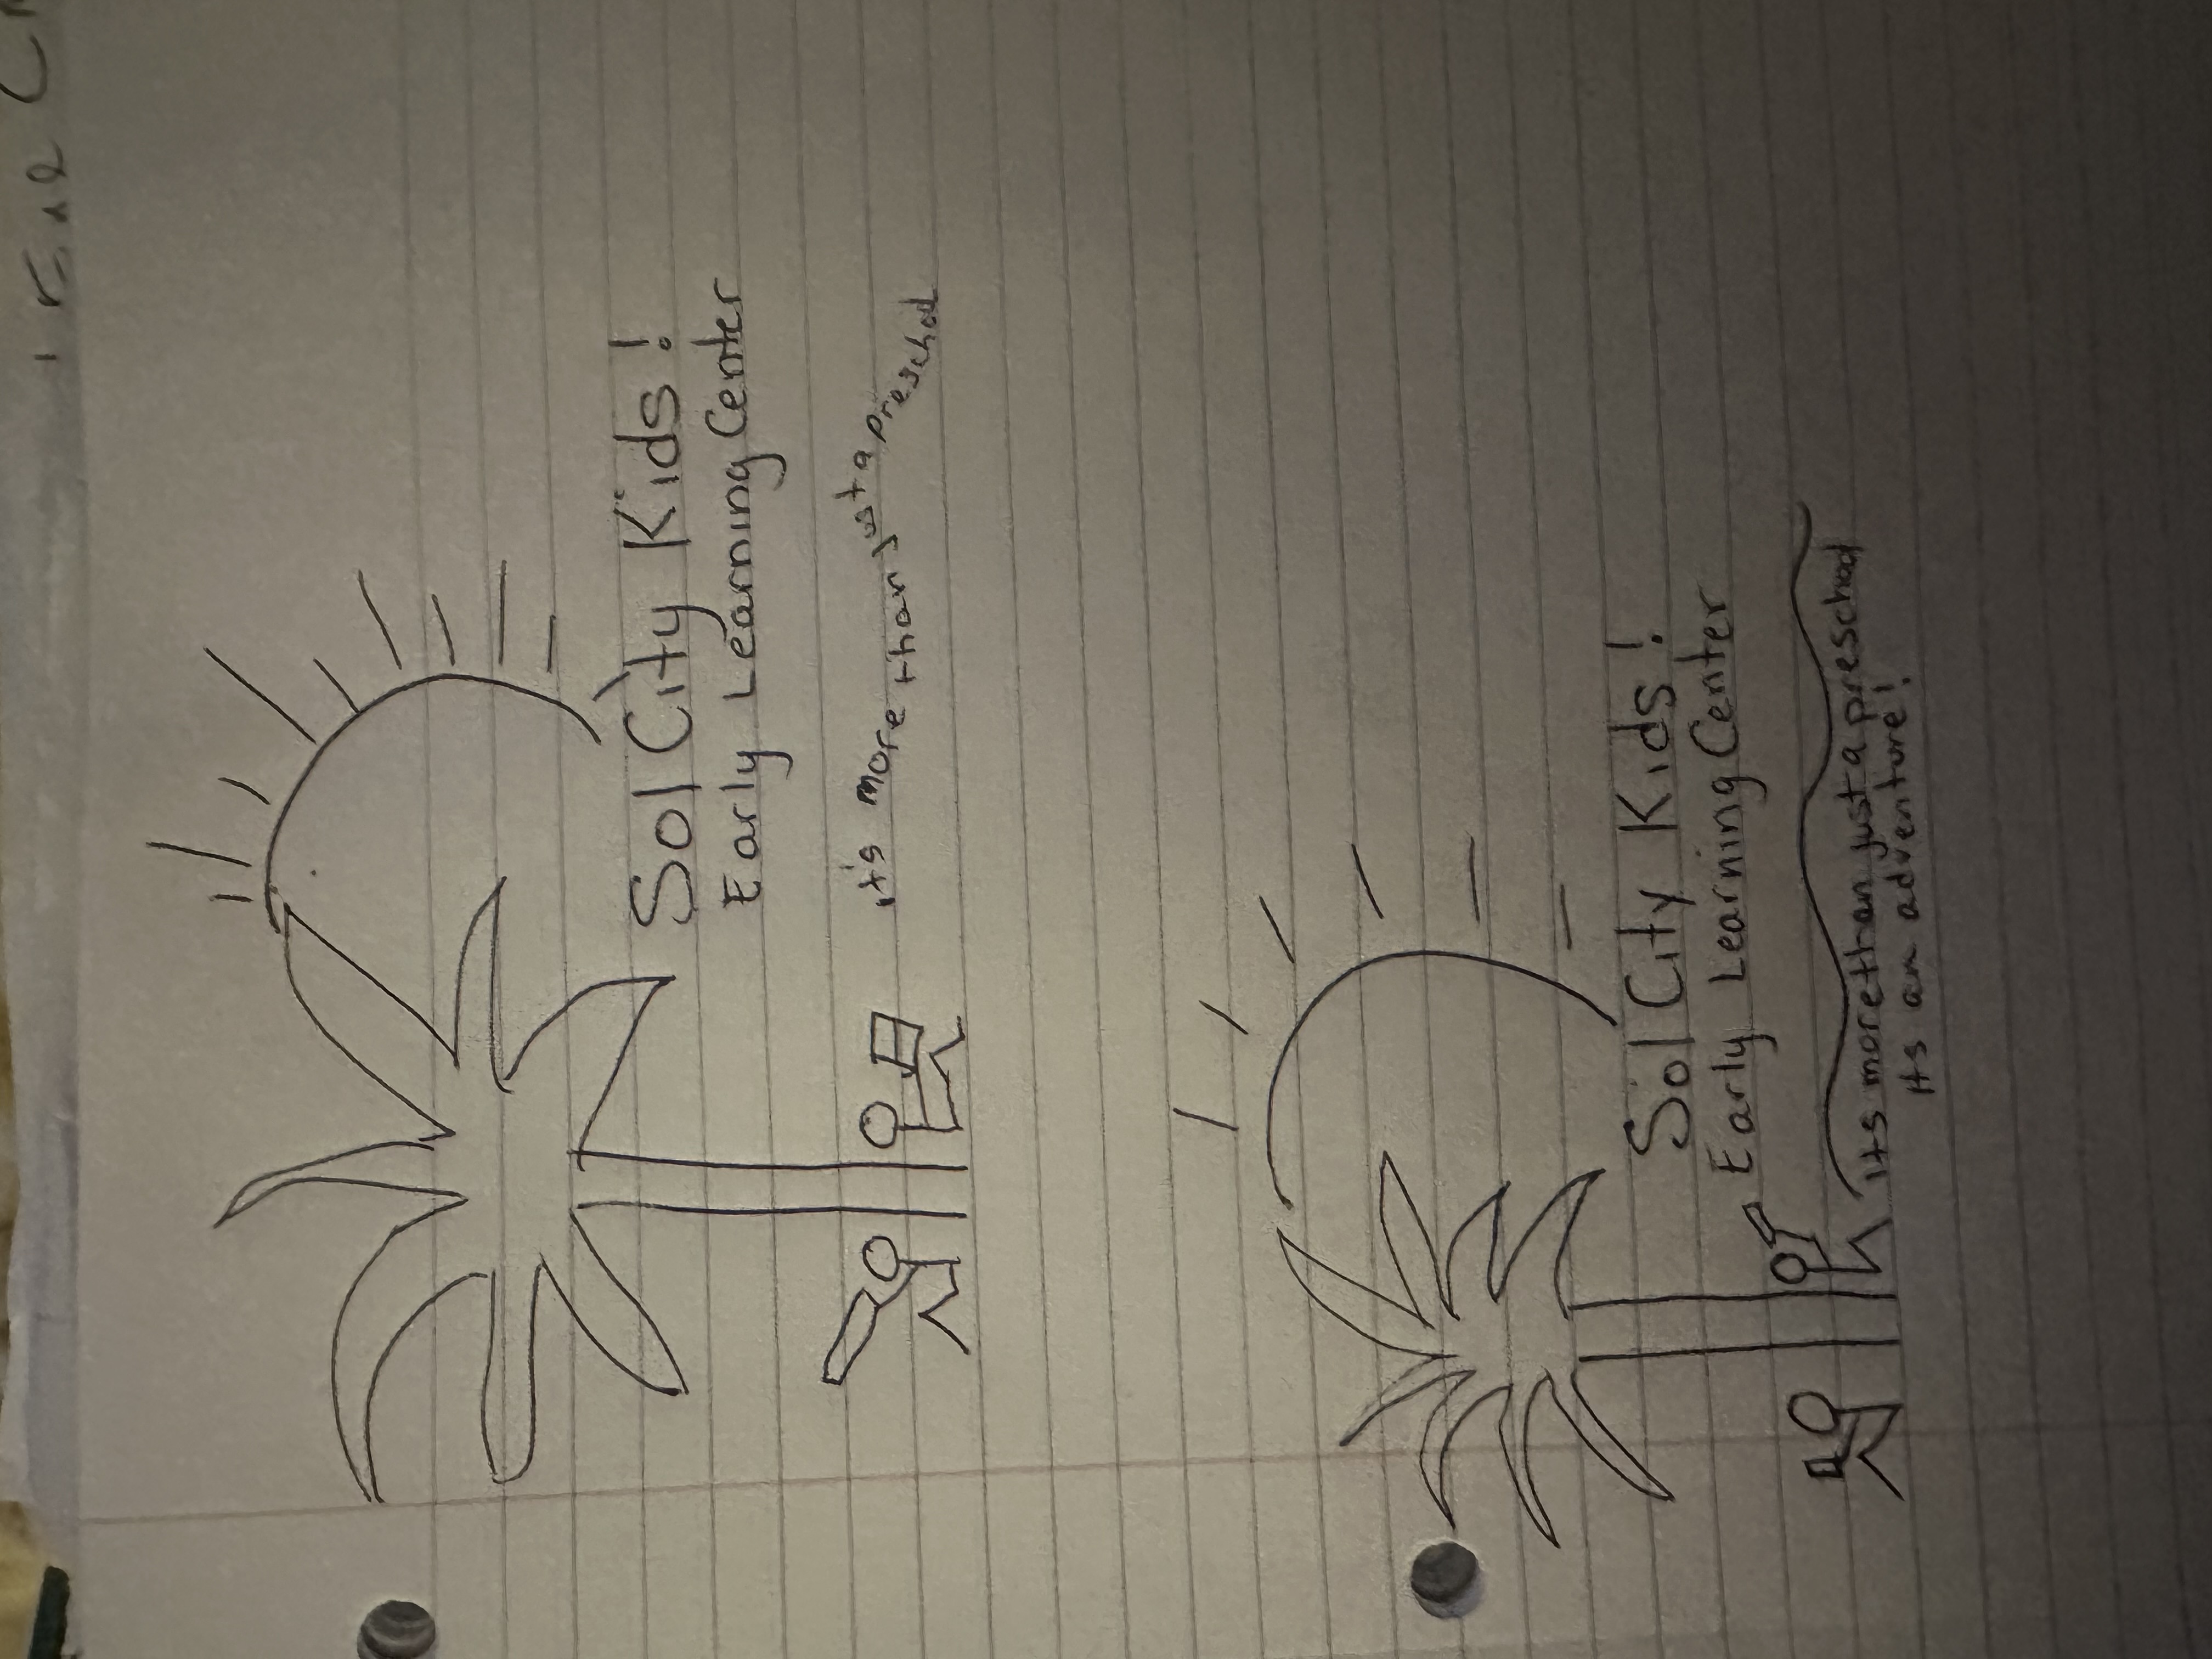 Sol City Kids!
Early Learning Center
it's more than just a preschool
Sol City Kids!
Early Learning Center
its more than just a preschool
Its an adventure!